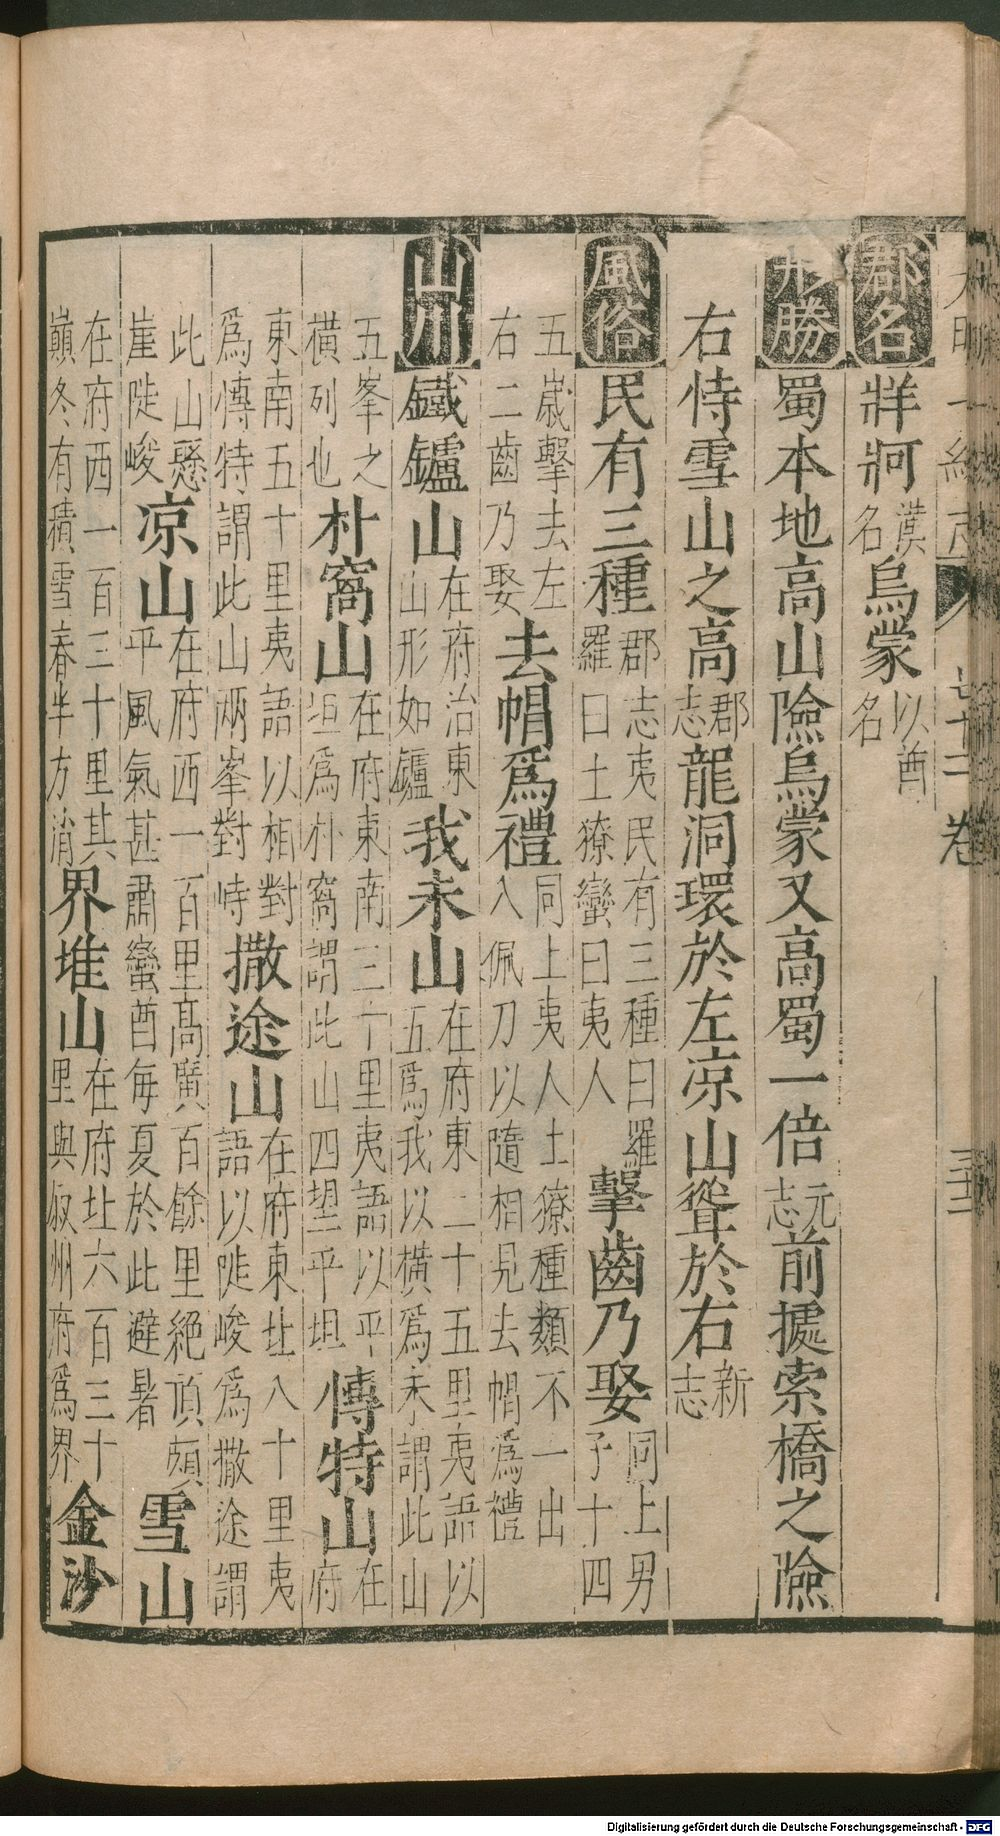 郡名 牂牁漢名烏蒙以酋名
形勝 蜀本地高山險烏蒙又高蜀一倍元志前據索橋之險
右恃雪山之高郡志龍洞環於左凉山聳於右新志
風俗 民有三種郡志夷民有三種曰羅羅曰土獠蠻曰夷人擊齒乃娶同上男子十四
五歲擊去左右二齒乃娶去帽爲禮同上夷人土獠種類不一出入佩刀以隨相見去帽爲禮
山川 鐵鑪山在府治東山形如鑪我未山在府東二十五里夷語以五爲我以橫爲未謂此山
五峯之橫列也朴窩山在府東南三十里夷語以平坦爲朴窩謂此山四望平坦傳特山在府
東南五十里夷語以相對爲傳特謂此山兩峯對峙撒途山在府東北八十里夷語以陡峻爲撒途謂
此山懸崖陡峻凉山在府西一百里高廣百餘里絕頂頗平風氣甚肅蠻酋每夏於此避暑雪山
在府西一百三十里其巔冬有積雪春半方消界堆山在府北六百三十里與叙州府爲界金沙
大明一統志 七十二卷 三十二
Digitalisierung gefördert durch die Deutsche Forschungsgemeinschaft - DFG